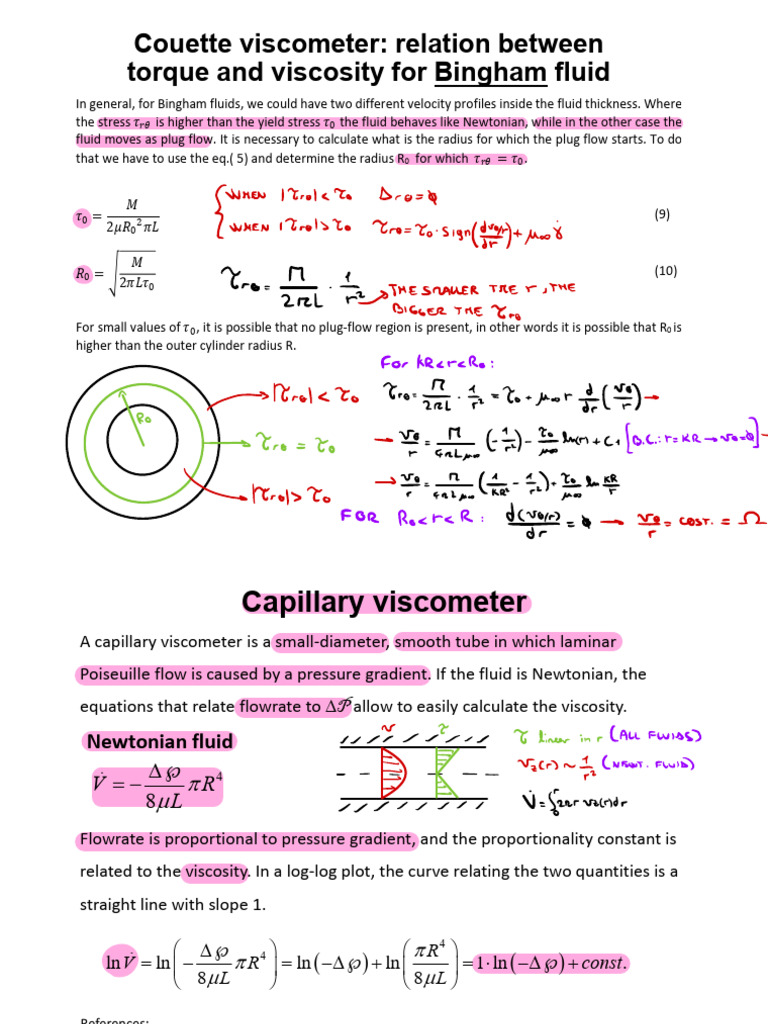 Couette viscometer: relation between
torque and viscosity for Bingham fluid
In general, for Bingham fluids, we could have two different velocity profiles inside the fluid thickness. Where
the stress τrθ is higher than the yield stress τ0 the fluid behaves like Newtonian, while in the other case the
fluid moves as plug flow. It is necessary to calculate what is the radius for which the plug flow starts. To do
that we have to use the eq.( 5) and determine the radius R0 for which τrθ = τ0.
τ0 = M / 2μR0²πL (9)
{ WHEN |τrθ| < τ0 Δrθ = ϕ
WHEN |τrθ| > τ0 τrθ = τ0 · sign(d(vθ/r)/dr) + μ∞ γ̇
R0 = √(M / 2πLτ0) (10)
τrθ = M/2πL · 1/r² → THE SMALLER THE r, THE
BIGGER THE τrθ
For small values of τ0, it is possible that no plug-flow region is present, in other words it is possible that R0 is
higher than the outer cylinder radius R.
FOR KR<r<R0:
R0
|τrθ| < τ0
τrθ = τ0
|τrθ| > τ0
τrθ = M/2πL · 1/r² = τ0 + μ∞ r d/dr (vθ/r) →
→ vθ/r = M/4πLμ∞ (-1/r²) - τ0/μ∞ ln(r) + C1 [B.C.: r = KR → vθ = ϕ] →
→ vθ/r = M/4πLμ∞ (1/KR² - 1/r²) + τ0/μ∞ ln KR/r
FOR R0<r<R: d(vθ/r)/dr = ϕ → vθ/r = COST. = Ω
Capillary viscometer
A capillary viscometer is a small-diameter, smooth tube in which laminar
Poiseuille flow is caused by a pressure gradient. If the fluid is Newtonian, the
equations that relate flowrate to Δ𝒫 allow to easily calculate the viscosity.
Newtonian fluid
v τ
τ linear in r (ALL FLUIDS)
vz(r) ~ 1/r² (NEWT. FLUID)
V̇ = ∫₀ʳ 2πr vz(r)dr
V̇ = - Δ℘/8μL πR⁴
Flowrate is proportional to pressure gradient, and the proportionality constant is
related to the viscosity. In a log-log plot, the curve relating the two quantities is a
straight line with slope 1.
ln V̇ = ln(- Δ℘/8μL πR⁴) = ln(-Δ℘) + ln(πR⁴/8μL) = 1·ln(-Δ℘) + const.
References: